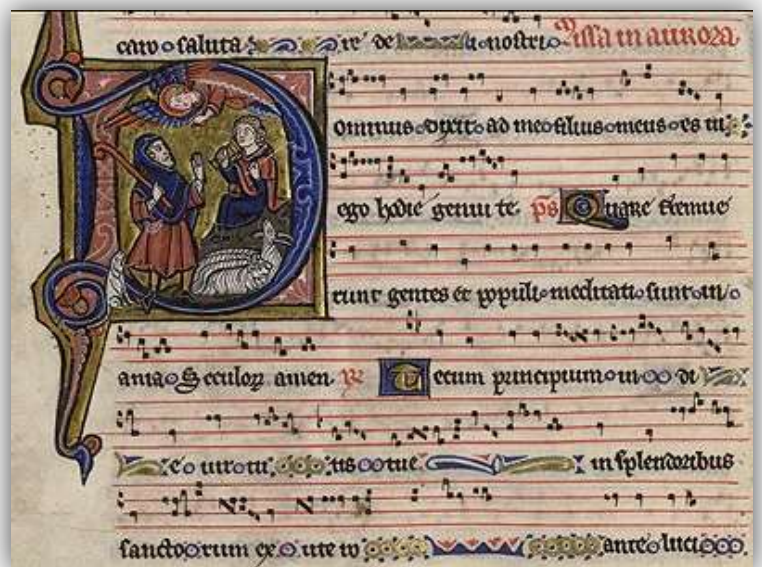 caro saluta re de i nostri Missa in aurora
Dominus dixit ad me filius meus es tu
ego hodie genui te. ps Quare fremue
runt gentes et populi meditati sunt in
ania Seculorum amen. Tecum principium in di
e uirtu tis tue in splendoribus
sanctorum ex ute ro ante luci